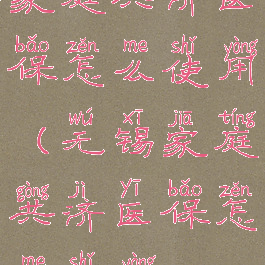 家庭共济医
bǎo zěn me shǐ yòng
保怎么使用
wú xī jiā tíng
（无锡家庭
gòng jì yī bǎo zěn
共济医保怎
me shǐ yòng